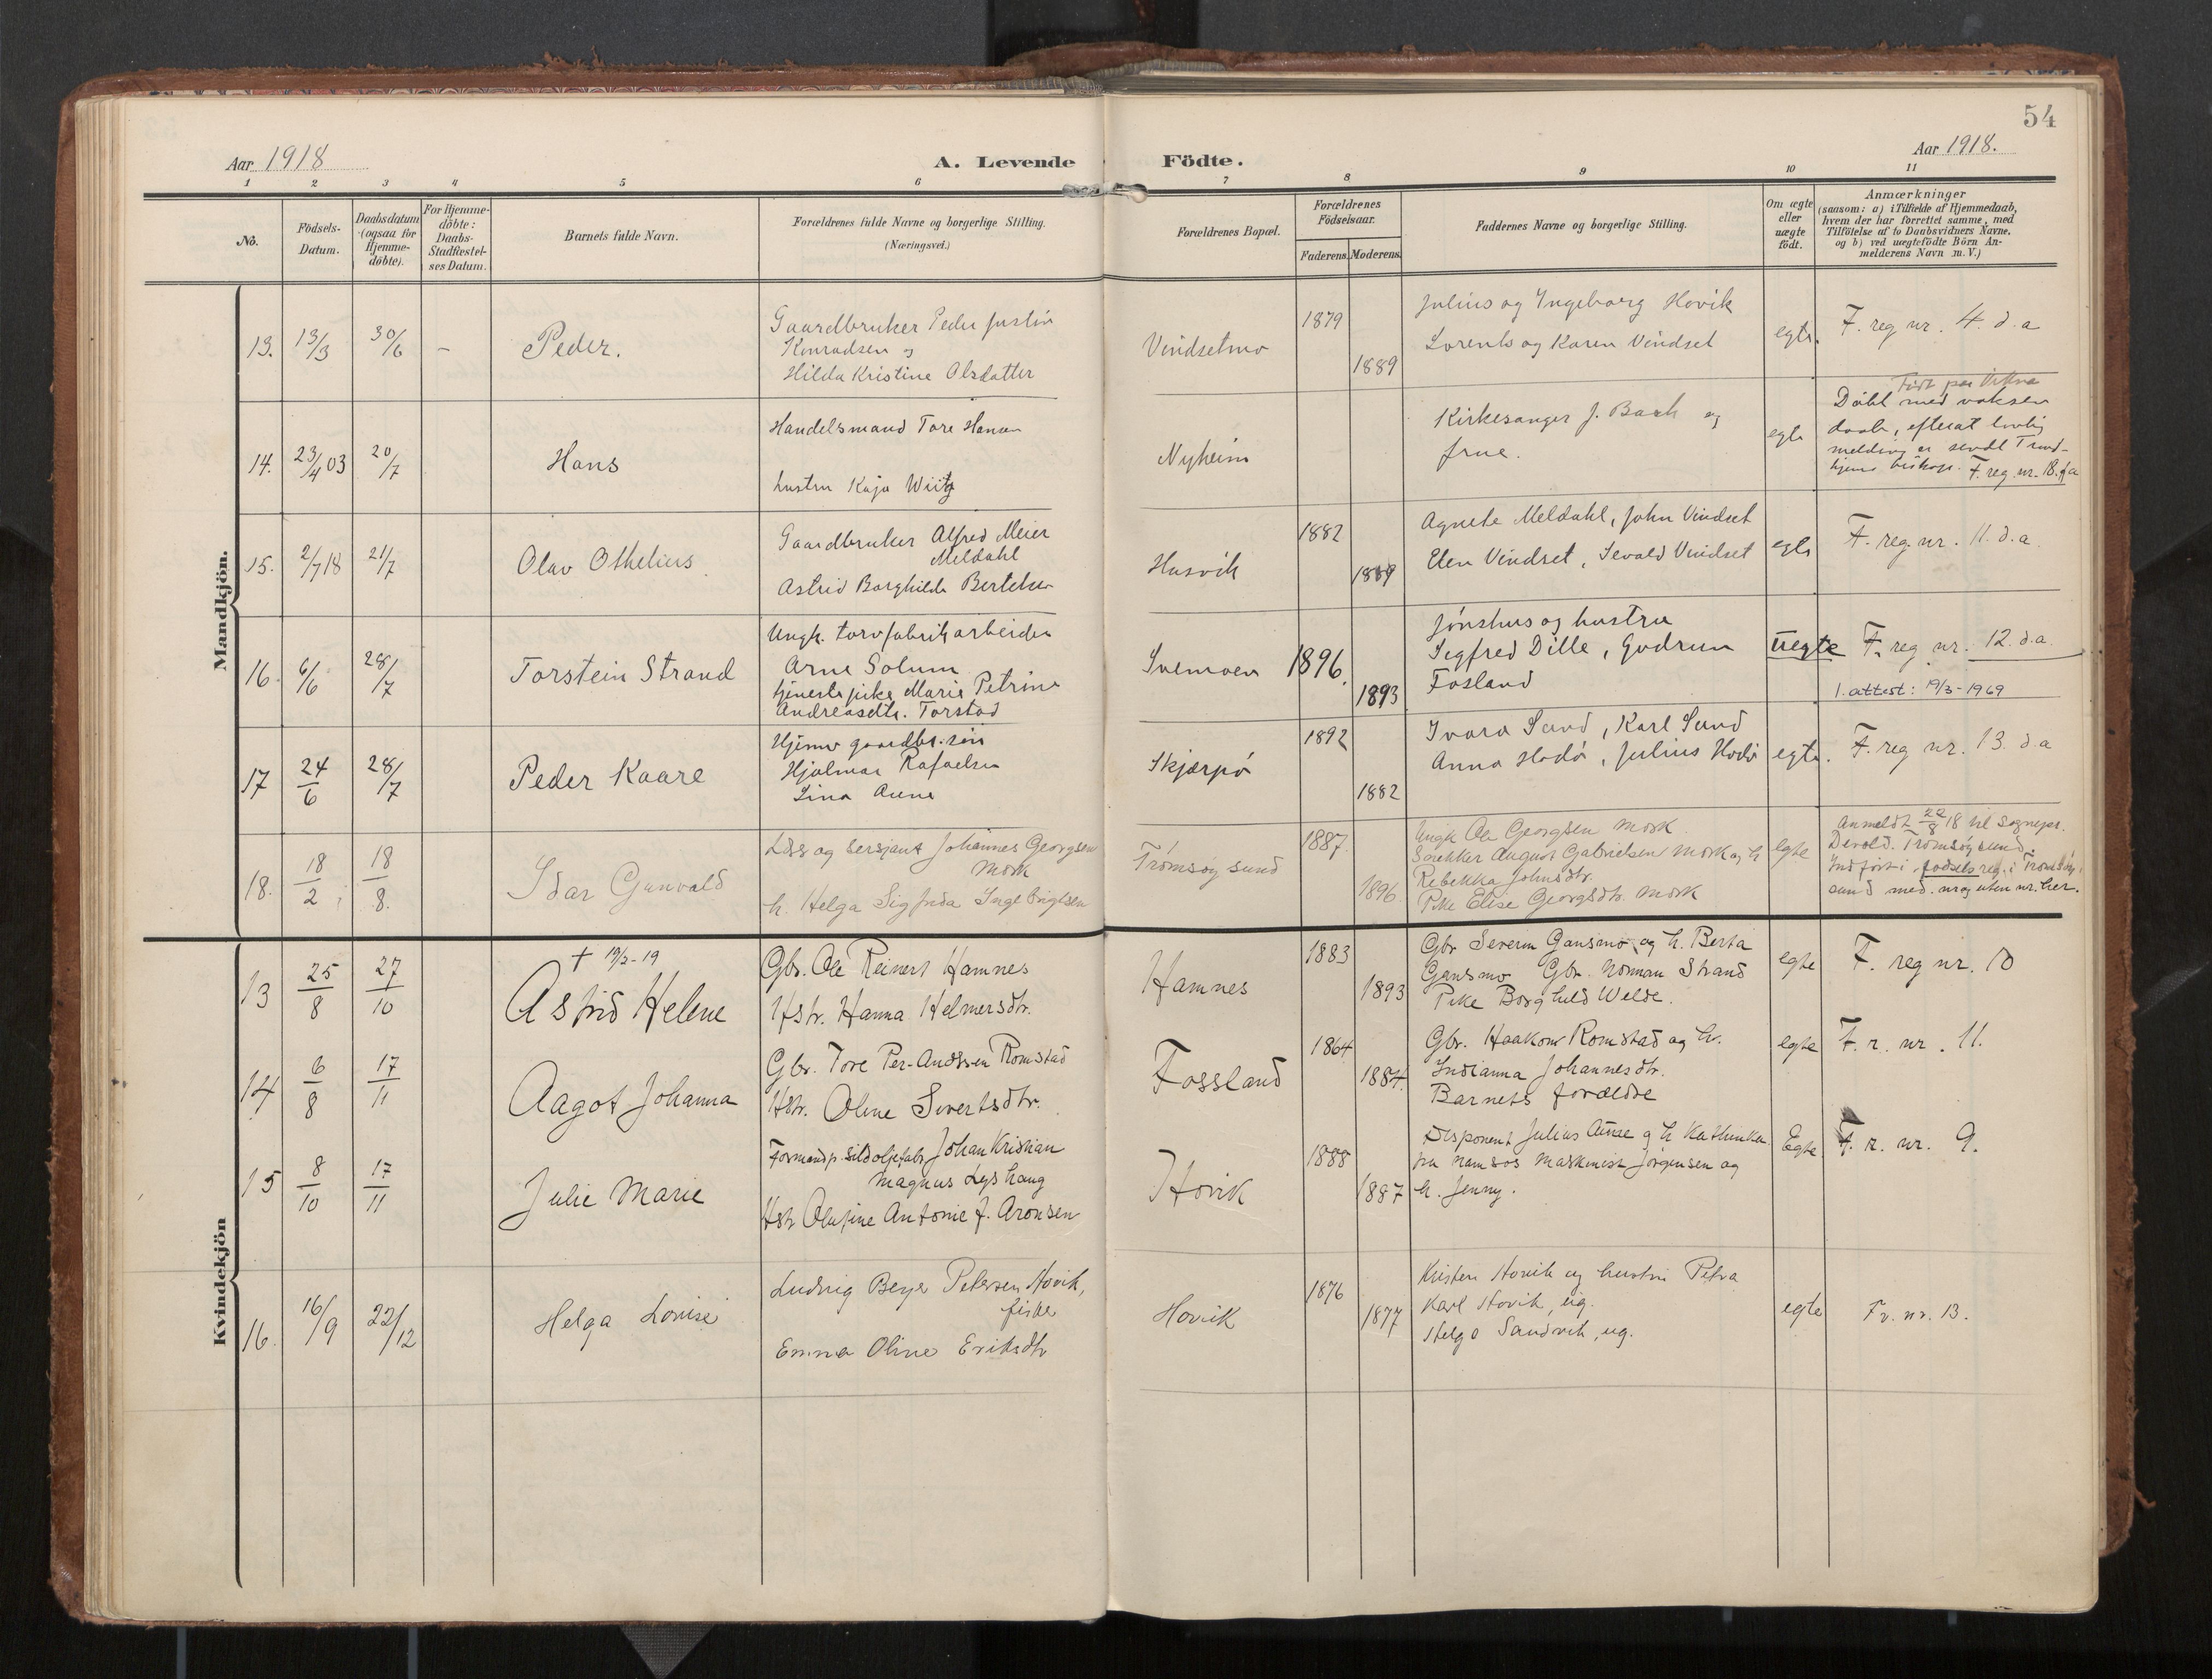 54
Aar 1918
A. Levende Födte.
Aar 1918.
1 2 3 4 5 6 7 8 9 10 11
No.
Födsels-
Datum.
Daabsdatum
(ogsaa for
Hjemme-
döbte).
For Hjemme-
döbte:
Daabs-
Stadfæstel-
ses Datum.
Barnets fulde Navn.
Forældrenes fulde Navne og borgerlige Stilling.
(Næringsvei.)
Forældrenes Bopæl.
Forældrenes
Födselsaar.
Faderens. Moderens.
Faddernes Navne og borgerlige Stilling.
Om ægte
eller
uægte
født.
Anmærkninger
(saasom: a) i Tilfælde af Hjemmedaab,
hvem der har forrettet samme, med
Tilföielse af to Daabsvidners Navne,
og b) ved uægtefödte Börn An-
melderens Navn m. V.)
Mandkjön.
13. 13/3 30/6 – Peder.
Gaardbruker Peder Justin
Konradsen og
Hilda Kristine Olsdatter
Vindsetmo
1879
1889
Julius og Ingeborg Hovik
Lorents og Karen Vindset
egte.
F. reg nr. 4. d. a
14. 23/4 03 20/7 Hans
Handelsmand Tore Hansen
hustru Kaja Wiig
Nyheim
Kirkesanger J. Bach og
frue.
egte
Døbt med voksen
daab, efterat lovlig
melding er sendt Trond-
hjems biskop. F. reg. nr. 18. d a
15. 2/7 18 21/7 Olav Othelius
Gaardbruker Alfred Meier
Meldahl
Astrid Borghilde Bertelsen
Husvik
1882
1889
Agnete Meldahl, John Vindset
Elen Vindset, Sevald Vindset
egte
F. reg nr. 11. d. a.
16. 6/6 28/7 Torstein Strand
Ungk. torvfabrikarbeider
Arne Solum
tjenestepike Marie Petrine
Andreasdtr. Torstad
Svemoen
1896.
1893
Jönshus og hustru
Segfred Dille, Gudrun
Fosland
uegte
F. reg nr. 12. d. a.
1. attest: 19/3-1969
17 24/6 28/7 Peder Kaare
Hjemv gaardbr. sön
Hjalmar Rafaelsen
Lina Anna
Skjærpö
1892
1882
Ivara Sund, Karl Sund
Anna Hodö, Julius Hodö
egte.
F. reg nr. 13. d. a
18. 18/2 18/8. Idar Gunvald
Lds og Sersjant Johannes Georgsen
Mork
h. Helga Sigfrida Ingebrigtsen
Tromsøysund
1887.
1896.
Ungk Ole Georgsen Mork
Snekker August Gabrielsen Mork og h
Rebekka Johnsdtr.
Pike Elise Georgsdtr. Mork
egte
Anmeldt 22/8 18 til Sognepr.
Devold. Tromsøysund.
Indført i fødselsreg. i Tromsøy-
sund med. nr og uten nr. her.
Kvindekjön
13 25/8 27/10
† 19/2-19
Astrid Helene
Gbr. Ole Reinert Hamnes
Hstr. Hanna Helmersdtr.
Hamnes
1883
1893
Gbr Severin Gansmo og h. Berta
Gansmo Gbr. Norman Strand
Pike Borghild Welde.
egte
F. reg nr. 10
14 6/8 17/11 Aagot Johanna
Gbr. Tore Per-Andssen Romstad
Hstr. Oline Sivertsdtr.
Fossland
1864
1884.
Gbr. Haakon Romstad og h.
Indianna Johannesdtr.
Barnets forældre
egte
F. r. nr. 11.
15 8/10 17/11 Julie Marie
Formand p. sildoljefabr Johan Kristian
Magnus Lyshaug
Hstr Olufine Antonie J. Aronsen
Hovik
1888
1887
Disponent Julius Aune og h Kathinka
fra Namsos Maskinist Jörgensen og
h. Jenny.
Egte
F. r. nr. 9.
16. 16/9 22/12 Helga Lovise
Ludvig Beyer Petersen Hovik,
fisker
Emma Oline Eriksdtr
Hovik
1876
1877
Kristen Hovik og hustru Petra
Karl Hovik, ug.
Helga Sandvik, ug.
egte
Fr. nr. 13.